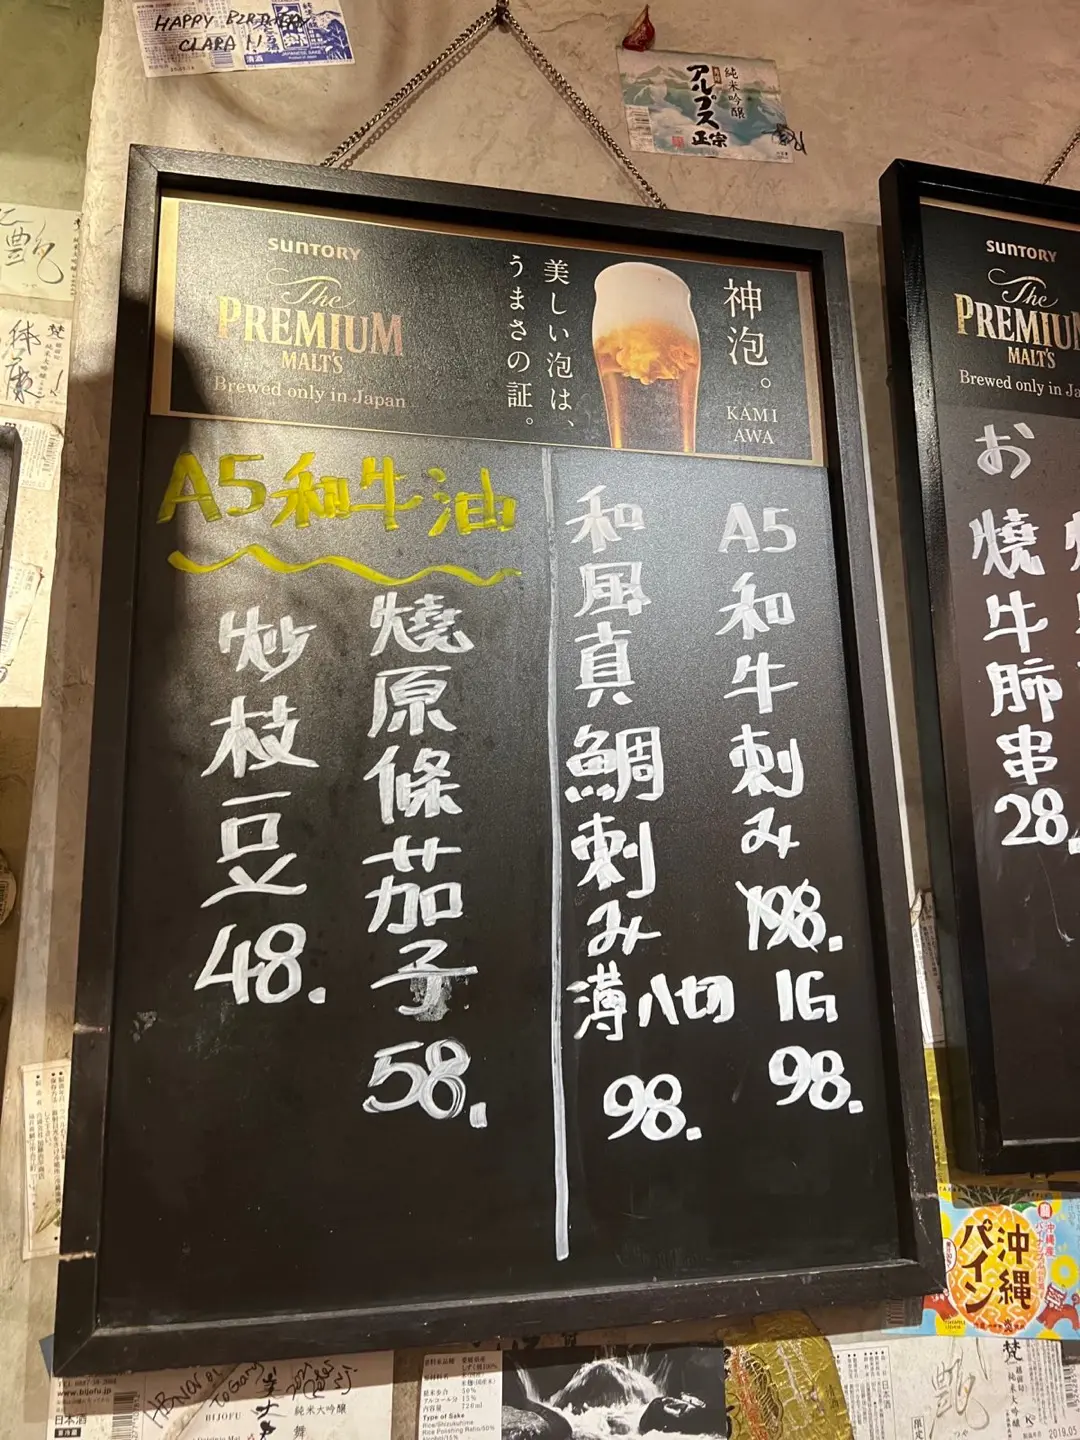 HAPPY BIRTHDAY
CLARA !!
清酒
純米吟醸
アルプス
正宗
SUNTORY
The
PREMIUM
MALT'S
Brewed only in Japan
美しい泡は、
うまさの証。
神泡。
KAMI
AWA
A5和牛油
A5和牛刺み
198.
1G
98.
和風真鯛刺み
薄八切
98.
燒原條茄子
58.
炒枝豆
48.
SUNTORY
The
PREMIUM
MALT'S
Brewed only in Ja
お
燒牛肺串
28.
沖縄
パイン
梵
日本酒
www.bijofu.jp
BIJOFU
純米大吟醸
舞
Type of Sake
梵
純米大吟醸
2019.05